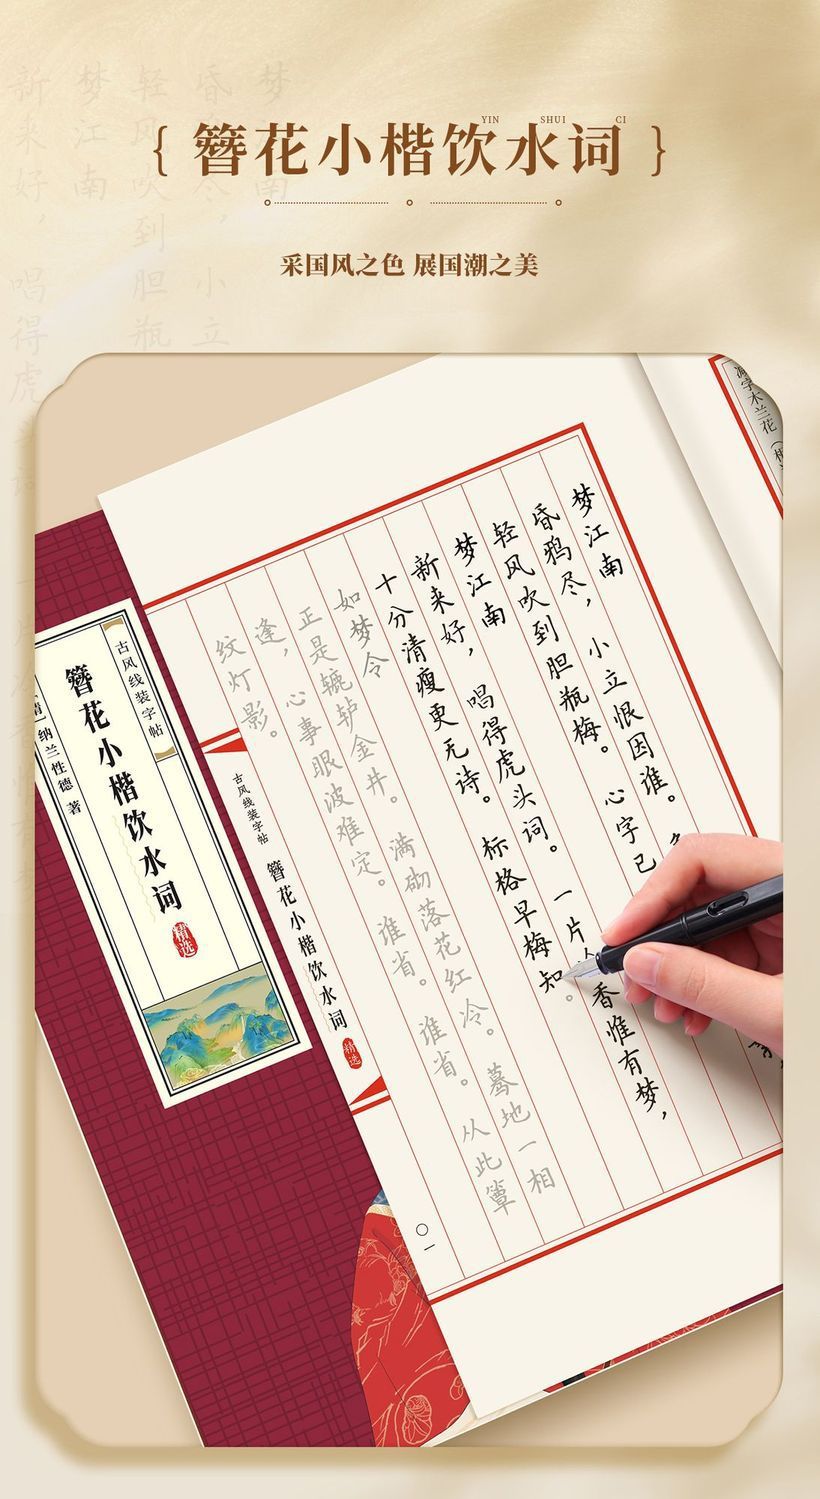 YIN SHUI CI
{ 簪花小楷饮水词 }
采国风之色 展国潮之美
减字木兰花
梦江南
昏鸦尽，小立恨因谁。
轻风吹到胆瓶梅。心字已
梦江南
新来好，唱得虎头词。一片
香惟有梦，
十分清瘦更无诗。标格早梅知。
如梦令
正是辘轳金井。满砌落花红冷。蓦地一相
逢，心事眼波难定。谁省。谁省。从此簟
纹灯影。
古风线装字帖
簪花小楷饮水词
精选
〇一
古风线装字帖
簪花小楷饮水词
精选
纳兰性德 著
新来好，唱得虎头词
梦江南
轻风吹到胆瓶
昏鸦尽，小立
梦江南